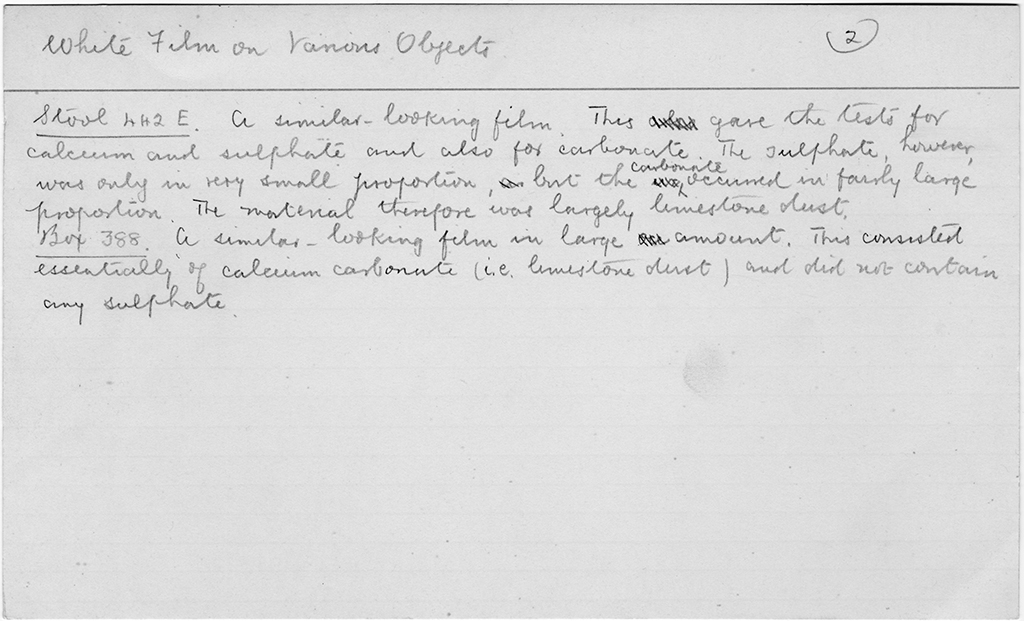 White Film on Various Objects
2
Stool 442 E. A similar-looking film. This gave the tests for
calcium and sulphate and also for carbonate. The sulphate, however,
was only in very small proportion, but the carbonate occurred in fairly large
proportion. The material therefore was largely limestone dust.
Box 388. A similar-looking film in large amount. This consisted
essentially of calcium carbonate (i.e. limestone dust) and did not contain
any sulphate.